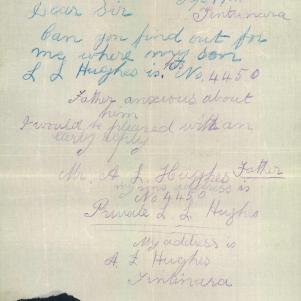 Dear Sir
Tintinara
Can you find out for
me where my son
L L Hughes is. No. 4450
Father anxious about
them
I would be pleased with an
early reply
Mr. A L Hughes Father
my sons address is
No 4450
Private L. L. Hughes
My address is
A L Hughes
Tintinara